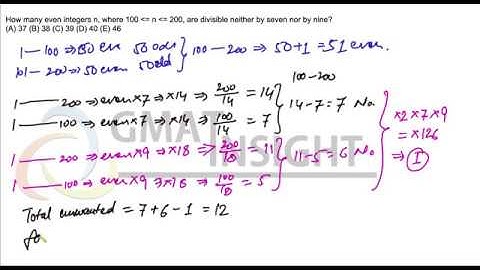 How many even integers n, where 100 <= n <= 200, are divisible neither by seven nor by nine?
(A) 37 (B) 38 (C) 39 (D) 40 (E) 46
1—100 ⇒ 50 eve 50 odd
101-200 ⇒ 50 even 50 odd
100-200 ⇒ 50+1 = 51 even.
1 —— 200 ⇒ even × 7 ⇒ ×14 ⇒ 200/14 = 14
1 —— 100 ⇒ even × 7 ⇒ ×14 ⇒ 100/14 = 7
100-200
14-7 = 7 No.
1 —— 200 ⇒ even × 9 ⇒ ×18 ⇒ 200/18 = 11
1 —— 100 ⇒ even × 9 ⇒ ×18 ⇒ 100/18 = 5
11-5 = 6 No
×2×7×9
= ×126
⇒ 1
Total unwanted = 7+6-1 = 12
GMA INSIGHT